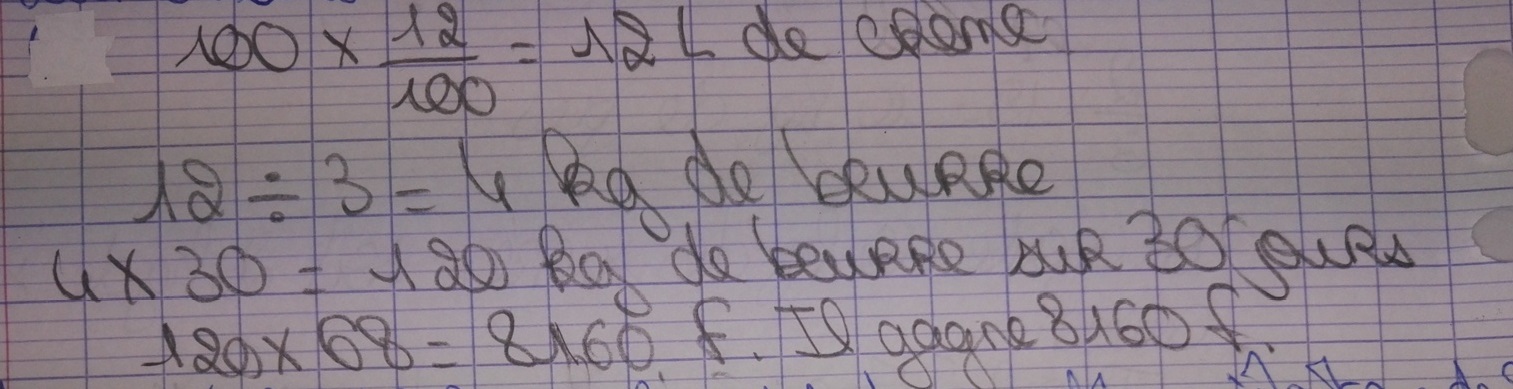 100 × 12/100 = 12 L de crème
12 ÷ 3 = 4 kg de beurre
4 × 30 = 120 kg de beurre sur 30 jours
120 × 68 = 8160 f. Il gagne 8160 f.